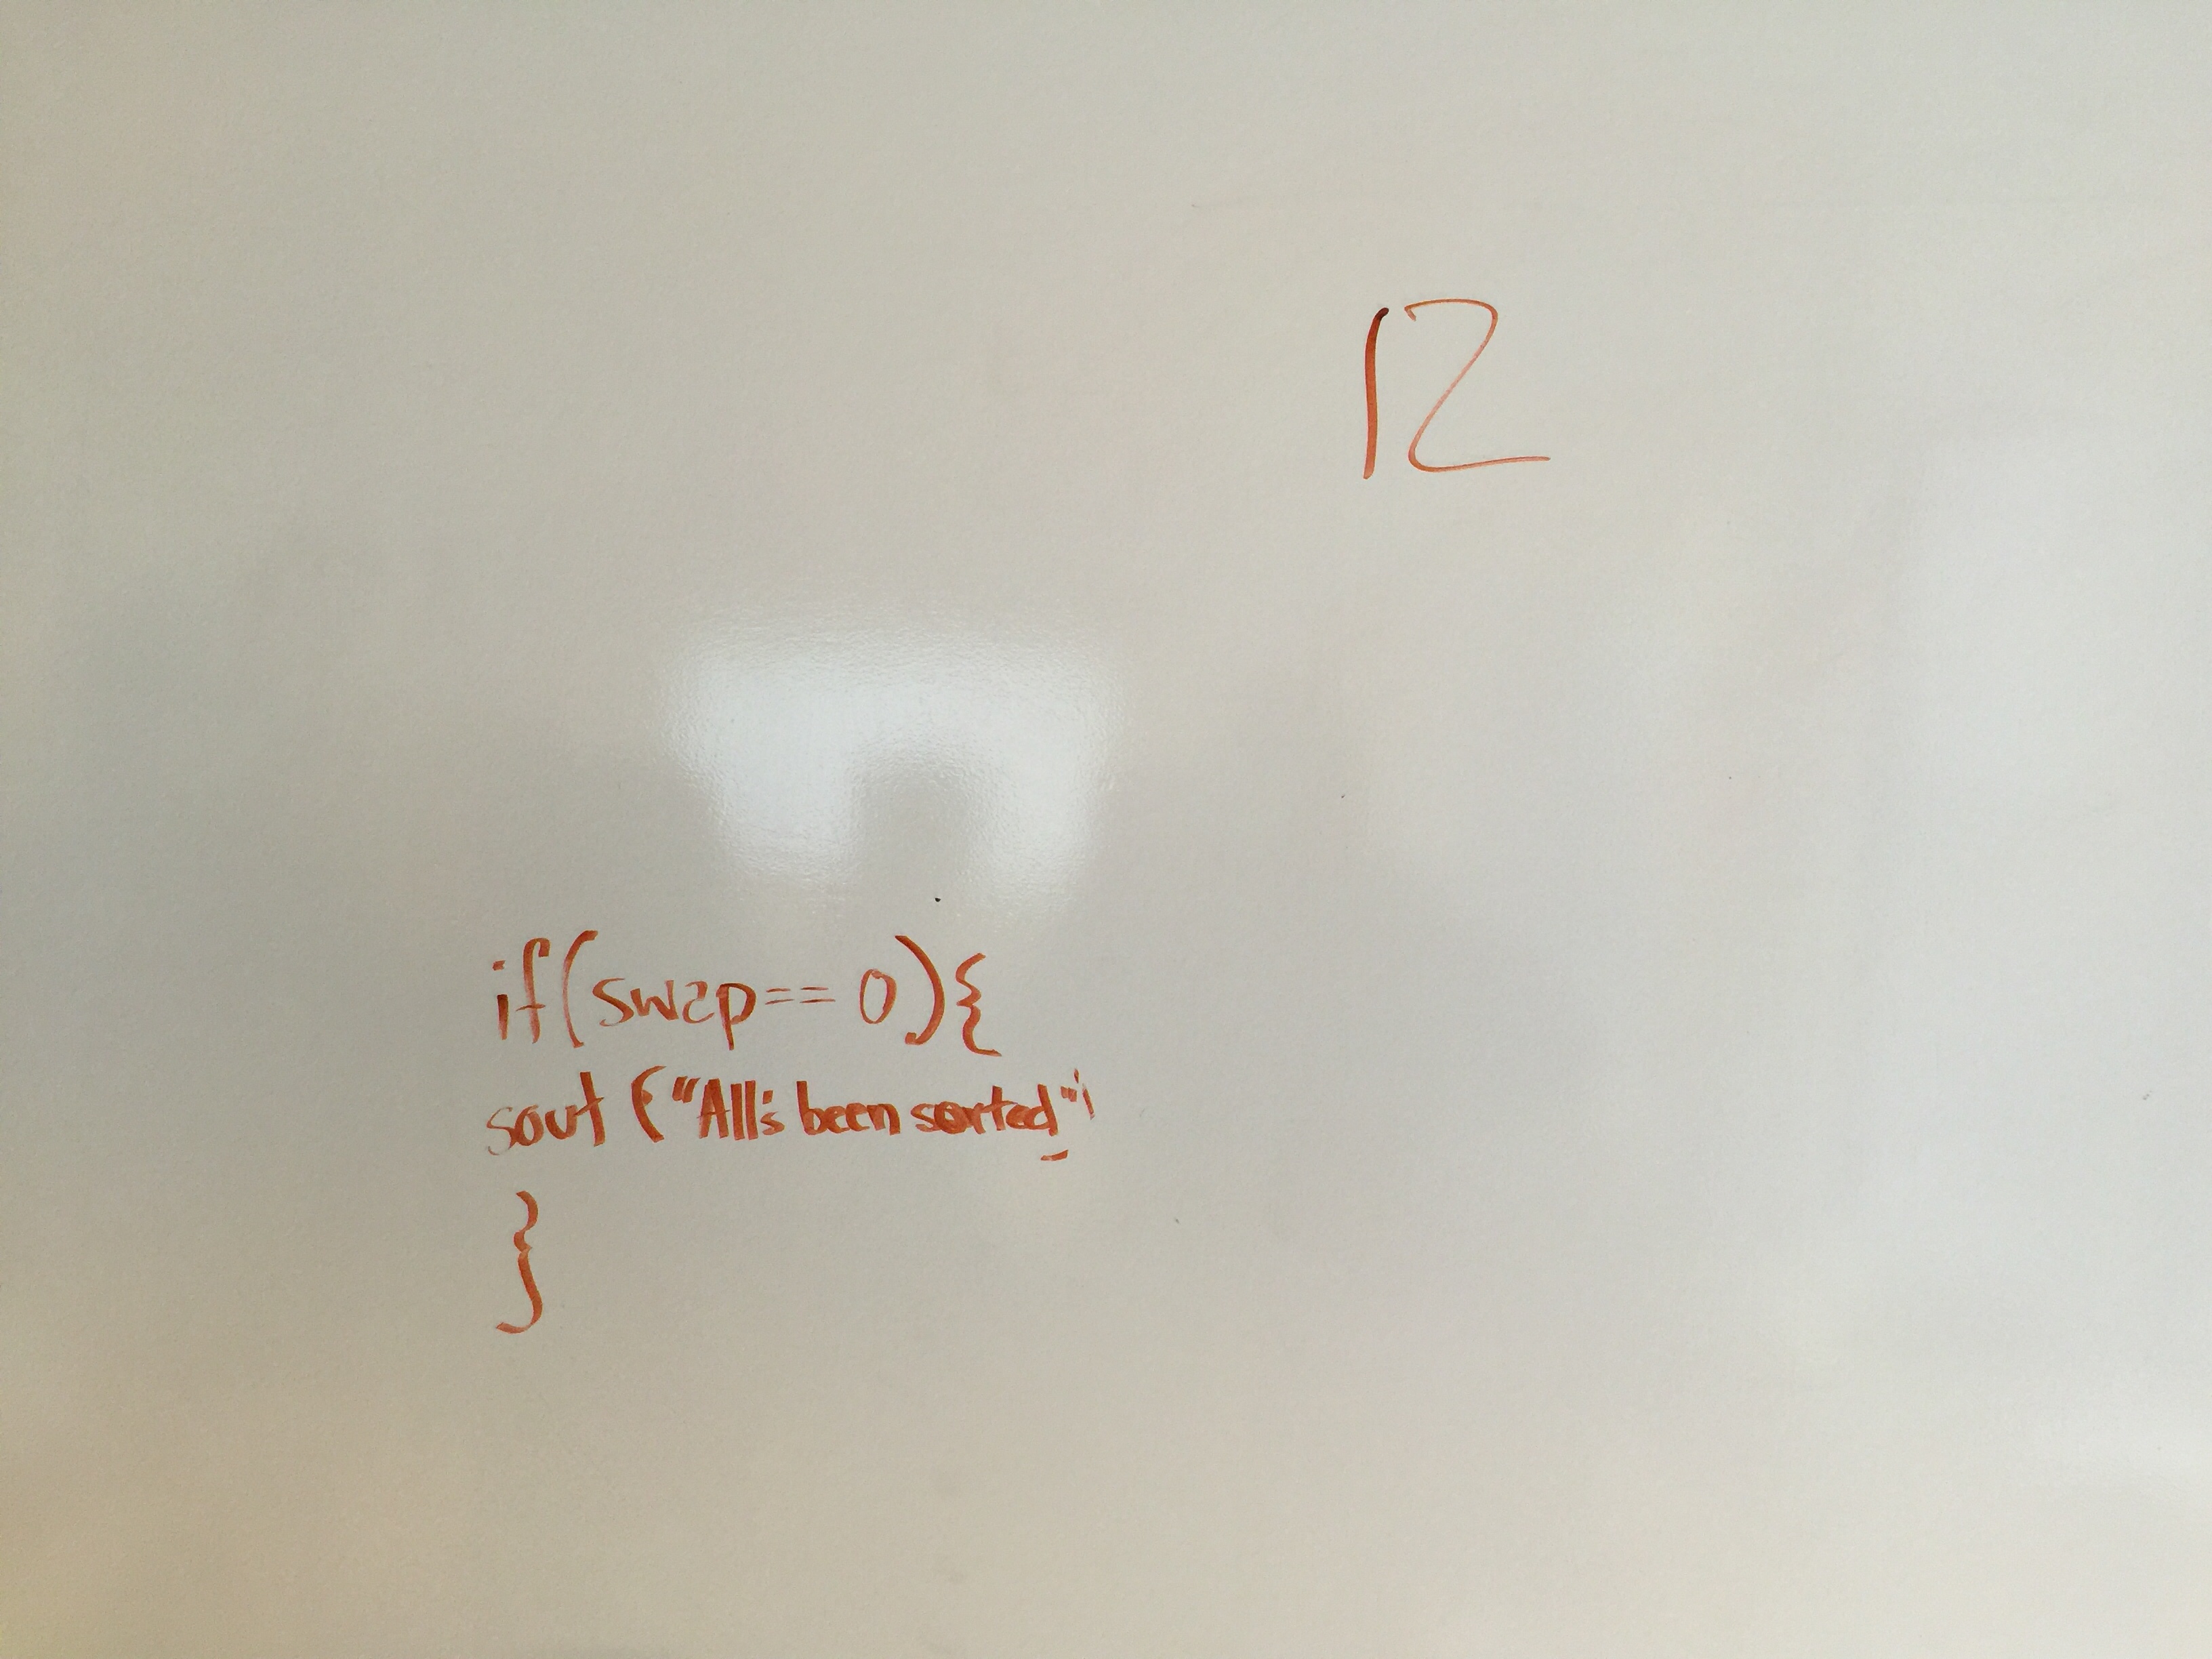 12
if(swap== 0){
sout ("All's been sorted"
}